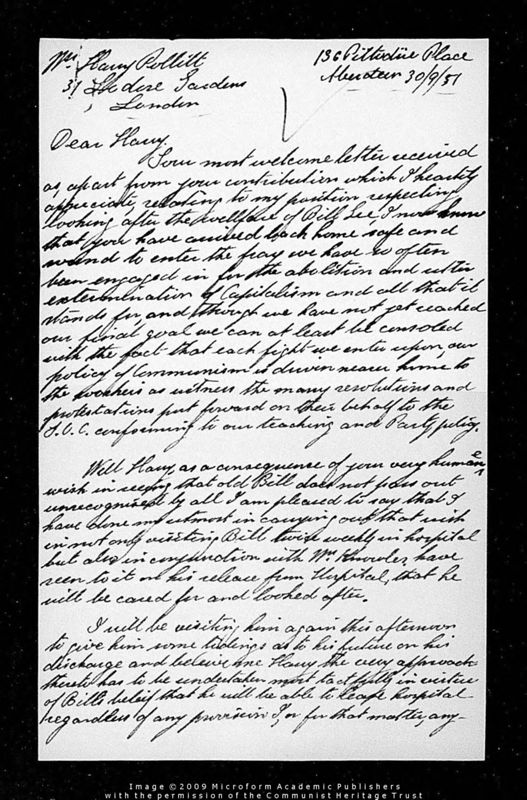 Mr Harry Pollitt
37 Lodore Gardens
London
136 Pittodrie Place
Aberdeen 30/9/51
Dear Harry.
Your most welcome letter received
as, apart from your contribution which I heartily
appreciate, relating to my position respecting
looking after the welfare of Bill Lee I now know
that you have arrived back home safe and
sound to enter the fray we have so often
been engaged in for the abolition and utter
extermination of Capitalism and all that it
stands for, and though we have not yet reached
our final goal we can at least be consoled
with the fact that each fight we enter upon, our
policy of Communism is driven nearer home to
the workers as witness the many resolutions and
protestations put forward on their behalf to the
T.U.C. conforming to our teaching and Party policy.
Well Harry, as a consequence of your very humane
wish in seeing that old Bill does not pass out
unrecognised by all I am pleased to say that I
have done my utmost in carrying out that wish
in not only visiting Bill twice weekly in hospital
but also in conjunction with Mr Knowles, have
seen to it on his release from Hospital, that he
will be cared for and looked after.
I will be visiting him again this afternoon
to give him some tidings as to his future on his
discharge and believe me Harry the very approach
thereto has to be undertaken most tactfully in virtue
of Bill's belief that he will be able to leave hospital
regardless of any provision I, or for that matter, any-
Image ©2009 Microform Academic Publishers
with the permission of the Communist Heritage Trust